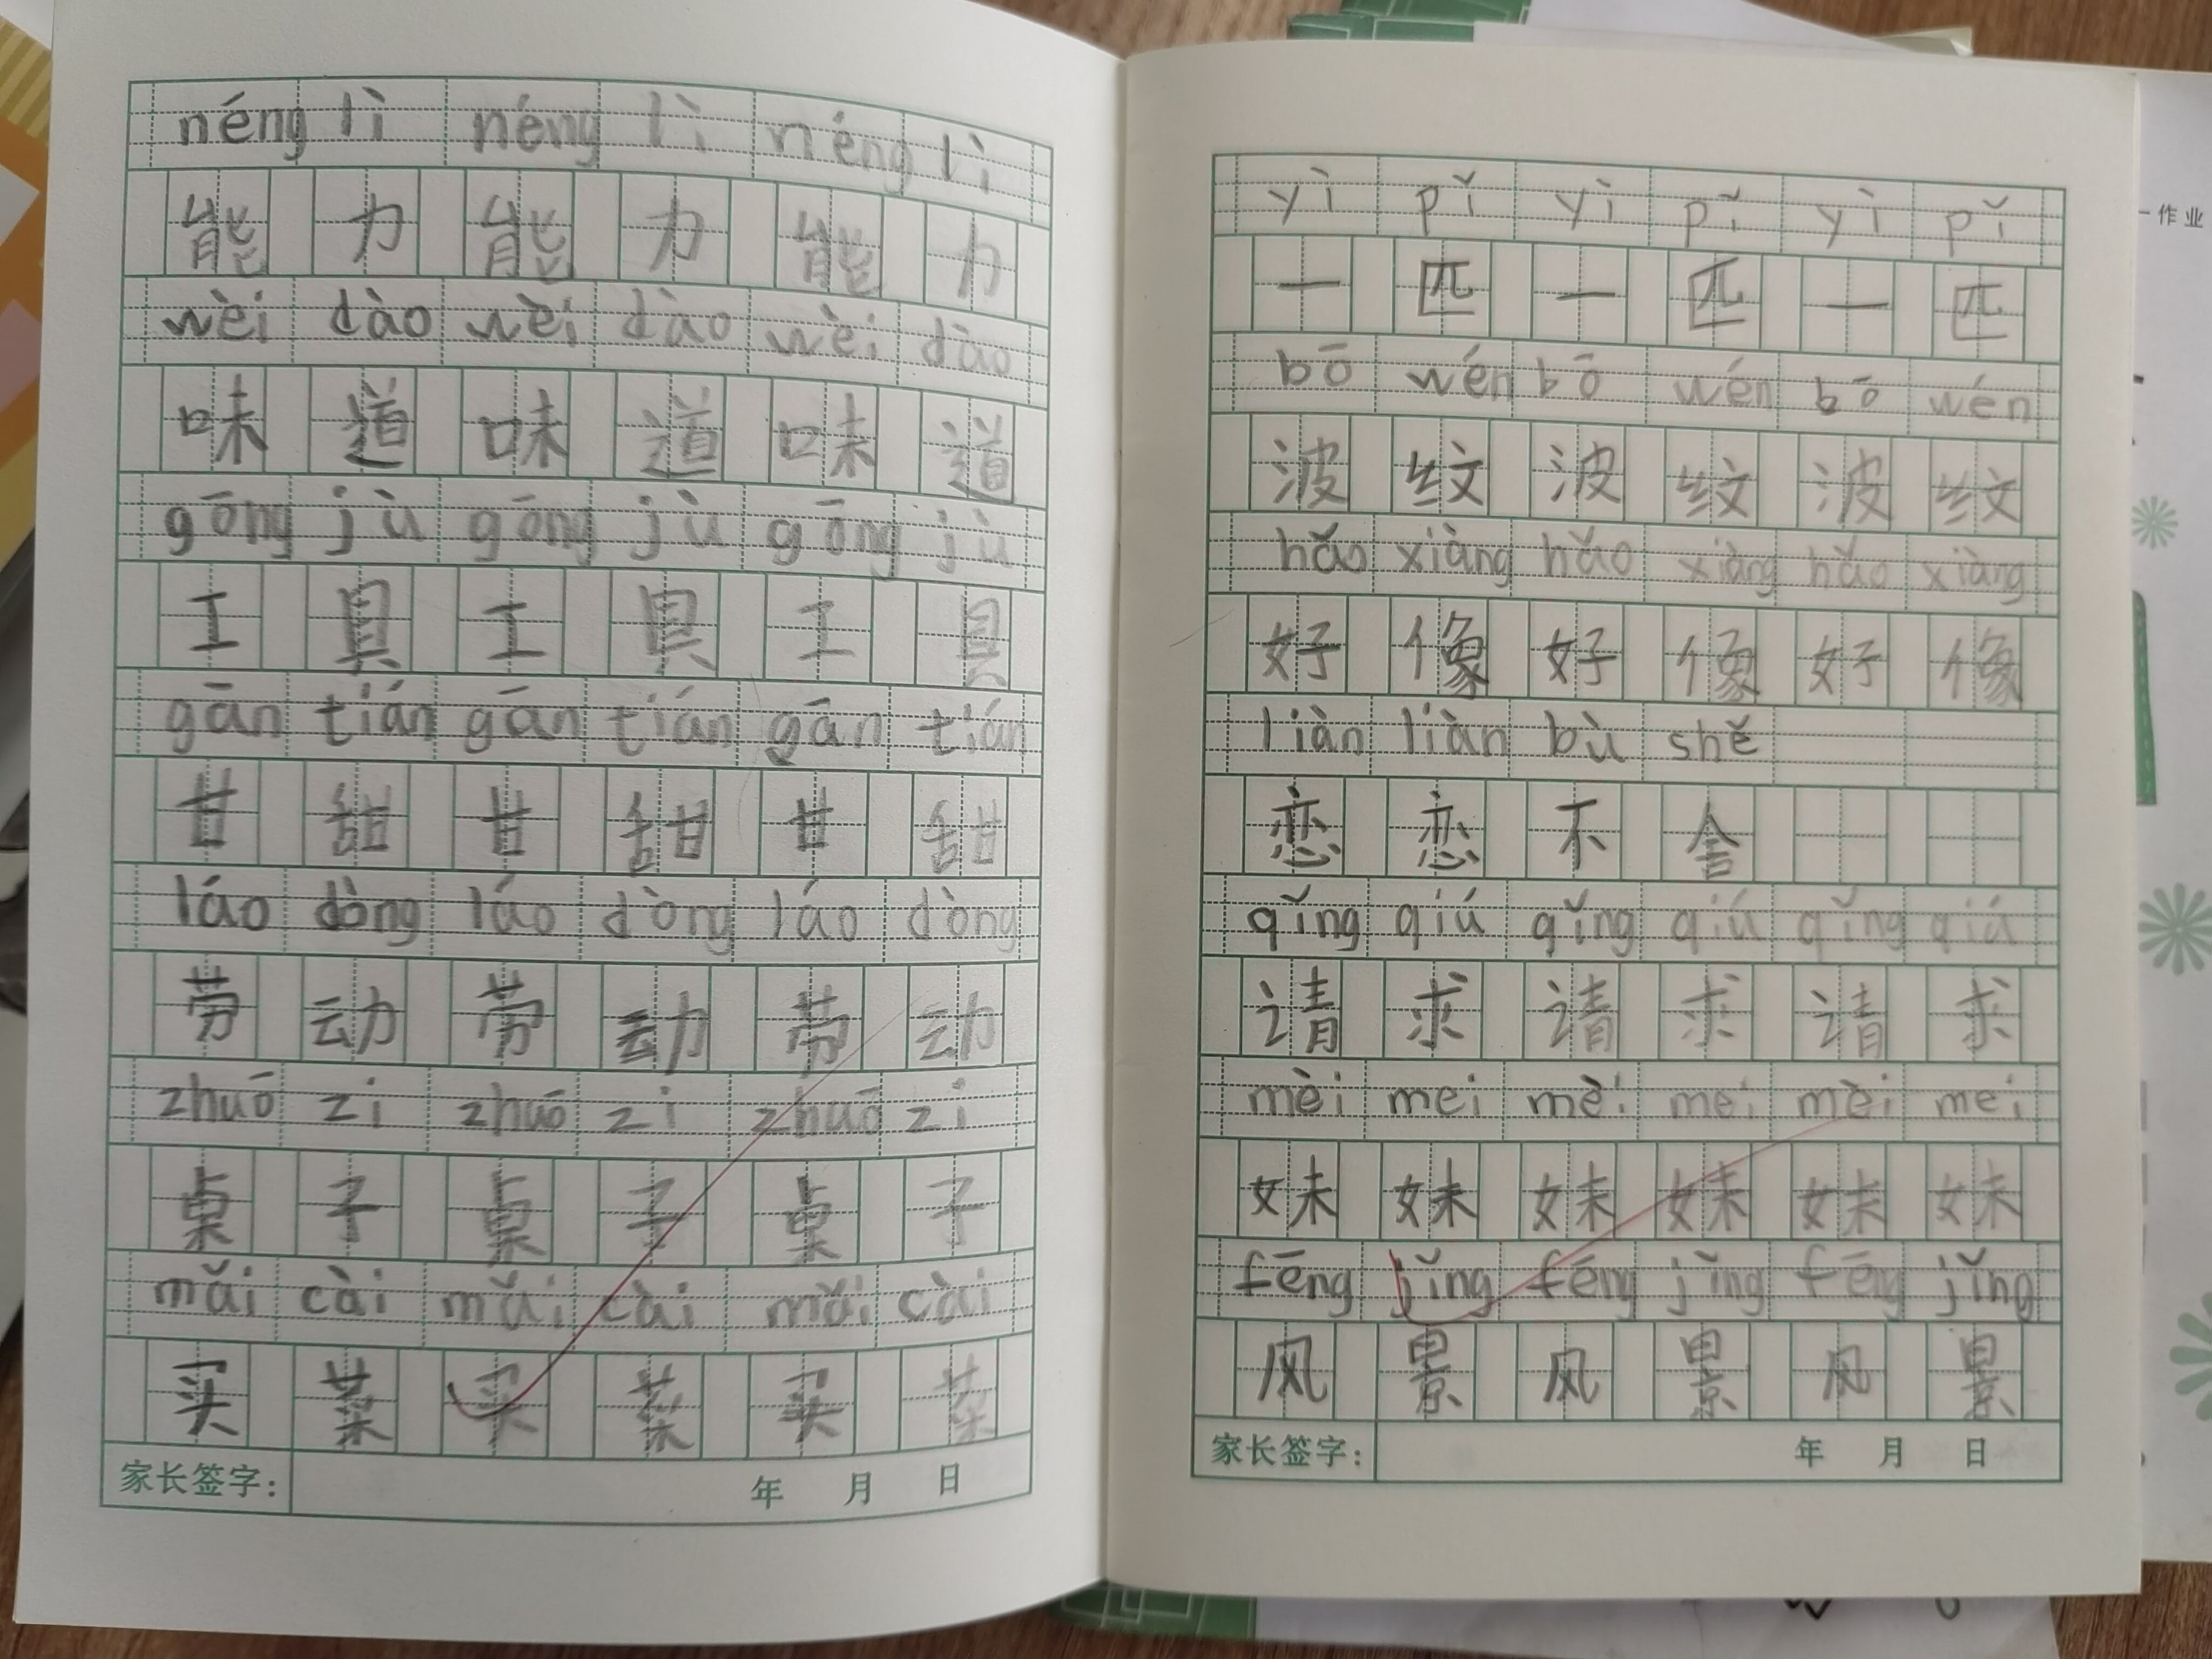 néng lì néng lì néng lì
能力能力能力
wèi dào wèi dào wèi dào
味道味道味道
gōng jù gōng jù gōng jù
工具工具工具
gān tián gān tián gān tián
甘甜甘甜甘甜
láo dòng láo dòng láo dòng
劳动劳动劳动
zhuō zi zhuō zi zhuō zi
桌子桌子桌子
mǎi cài mǎi cài mǎi cài
买菜买菜买菜
家长签字: 年 月 日
yì pǐ yì pǐ yì pǐ
一匹一匹一匹
bō wén bō wén bō wén
波纹波纹波纹
hǎo xiàng hǎo xiàng hǎo xiàng
好像好像好像
liàn liàn bù shě
恋恋不舍
qǐng qiú qǐng qiú qǐng qiú
请求请求请求
mèi mei mèi mei mèi mei
妹妹妹妹妹妹
fēng jǐng fēng jǐng fēng jǐng
风景风景风景
家长签字: 年 月 日
一作业